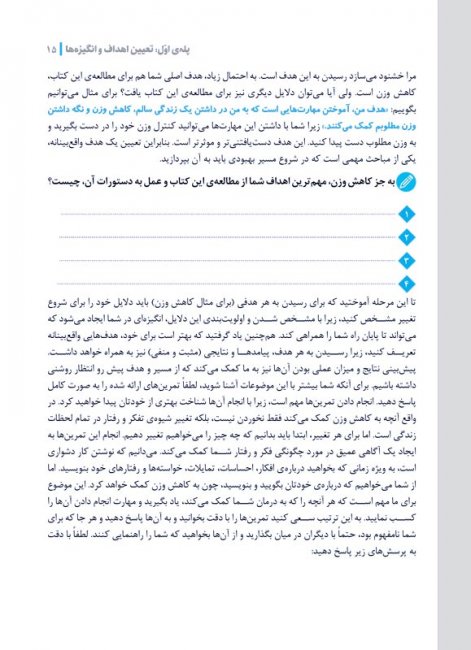 پله‌ی اوّل: تعیین اهداف و انگیزه‌ها | ۱۵
مرا خشنود می‌سازد رسیدن به این هدف است. به احتمال زیاد، هدف اصلی شما هم برای مطالعه‌ی این کتاب،
کاهش وزن است. ولی آیا می‌توان دلایل دیگری نیز برای مطالعه‌ی این کتاب یافت؟ برای مثال می‌توانیم
بگوییم: «هدف من، آموختن مهارت‌هایی است که به من در داشتن یک زندگی سالم، کاهش وزن و نگه داشتن
وزن مطلوبم کمک می‌کنند.» زیرا شما با داشتن این مهارت‌ها می‌توانید کنترل وزن خود را در دست بگیرید و
به وزن مطلوب دست پیدا کنید. این هدف دست‌یافتنی‌تر و موثرتر است. بنابراین تعیین یک هدف واقع‌بینانه،
یکی از مباحث مهمی است که در شروع مسیر بهبودی باید به آن بپردازید.
به جز کاهش وزن، مهم‌ترین اهداف شما از مطالعه‌ی این کتاب و عمل به دستورات آن، چیست؟
۱
۲
۳
۴
تا این مرحله آموختید که برای رسیدن به هر هدفی (برای مثال کاهش وزن) باید دلایل خود را برای شروع
تغییر مشخص کنید، زیرا با مشخص شدن و اولویت‌بندی این دلایل، انگیزه‌ای در شما ایجاد می‌شود که
می‌تواند تا پایان راه شما را همراهی کند. هم‌چنین یاد گرفتید که بهتر است برای خود، هدف‌هایی واقع‌بینانه
تعریف کنید، زیرا رسیدن به هر هدف، پیامدها و نتایجی (مثبت و منفی) نیز به همراه خواهد داشت.
پیش‌بینی نتایج و میزان عملی بودن آن‌ها نیز به ما کمک می‌کند که از مسیر و هدف پیش رو انتظار روشنی
داشته باشیم. برای آنکه شما بیشتر با این موضوعات آشنا شوید، لطفاً تمرین‌های ارائه شده را به صورت کامل
پاسخ دهید. انجام دادن تمرین‌ها مهم است، زیرا با انجام آن‌ها شناخت بهتری از خودتان پیدا خواهید کرد. در
واقع آنچه به کاهش وزن کمک می‌کند فقط نخوردن نیست، بلکه تغییر شیوه‌ی تفکر و رفتار در تمام لحظات
زندگی است. اما برای هر تغییر، ابتدا باید بدانیم که چه چیز را می‌خواهیم تغییر دهیم. انجام این تمرین‌ها به
ایجاد یک آگاهی عمیق در مورد چگونگی فکر و رفتار شما کمک می‌کند. می‌دانیم که نوشتن کار دشواری
است، به ویژه زمانی که بخواهید درباره‌ی افکار، احساسات، تمایلات، خواسته‌ها و رفتارهای خود بنویسید. اما
از شما می‌خواهیم که درباره‌ی خودتان بگویید و بنویسید، چون به کاهش وزن کمک خواهد کرد. این موضوع
برای ما مهم است که هر آنچه را که به درمان شما کمک می‌کند، یاد بگیرید و مهارت انجام دادن آن‌ها را
کسب نمایید. به این ترتیب سعی کنید تمرین‌ها را با دقت بخوانید و به آن‌ها پاسخ دهید و هر جا که برای
شما نامفهوم بود، حتماً با دیگران در میان بگذارید و از آن‌ها بخواهید که شما را راهنمایی کنند. لطفاً با دقت
به پرسش‌های زیر پاسخ دهید: